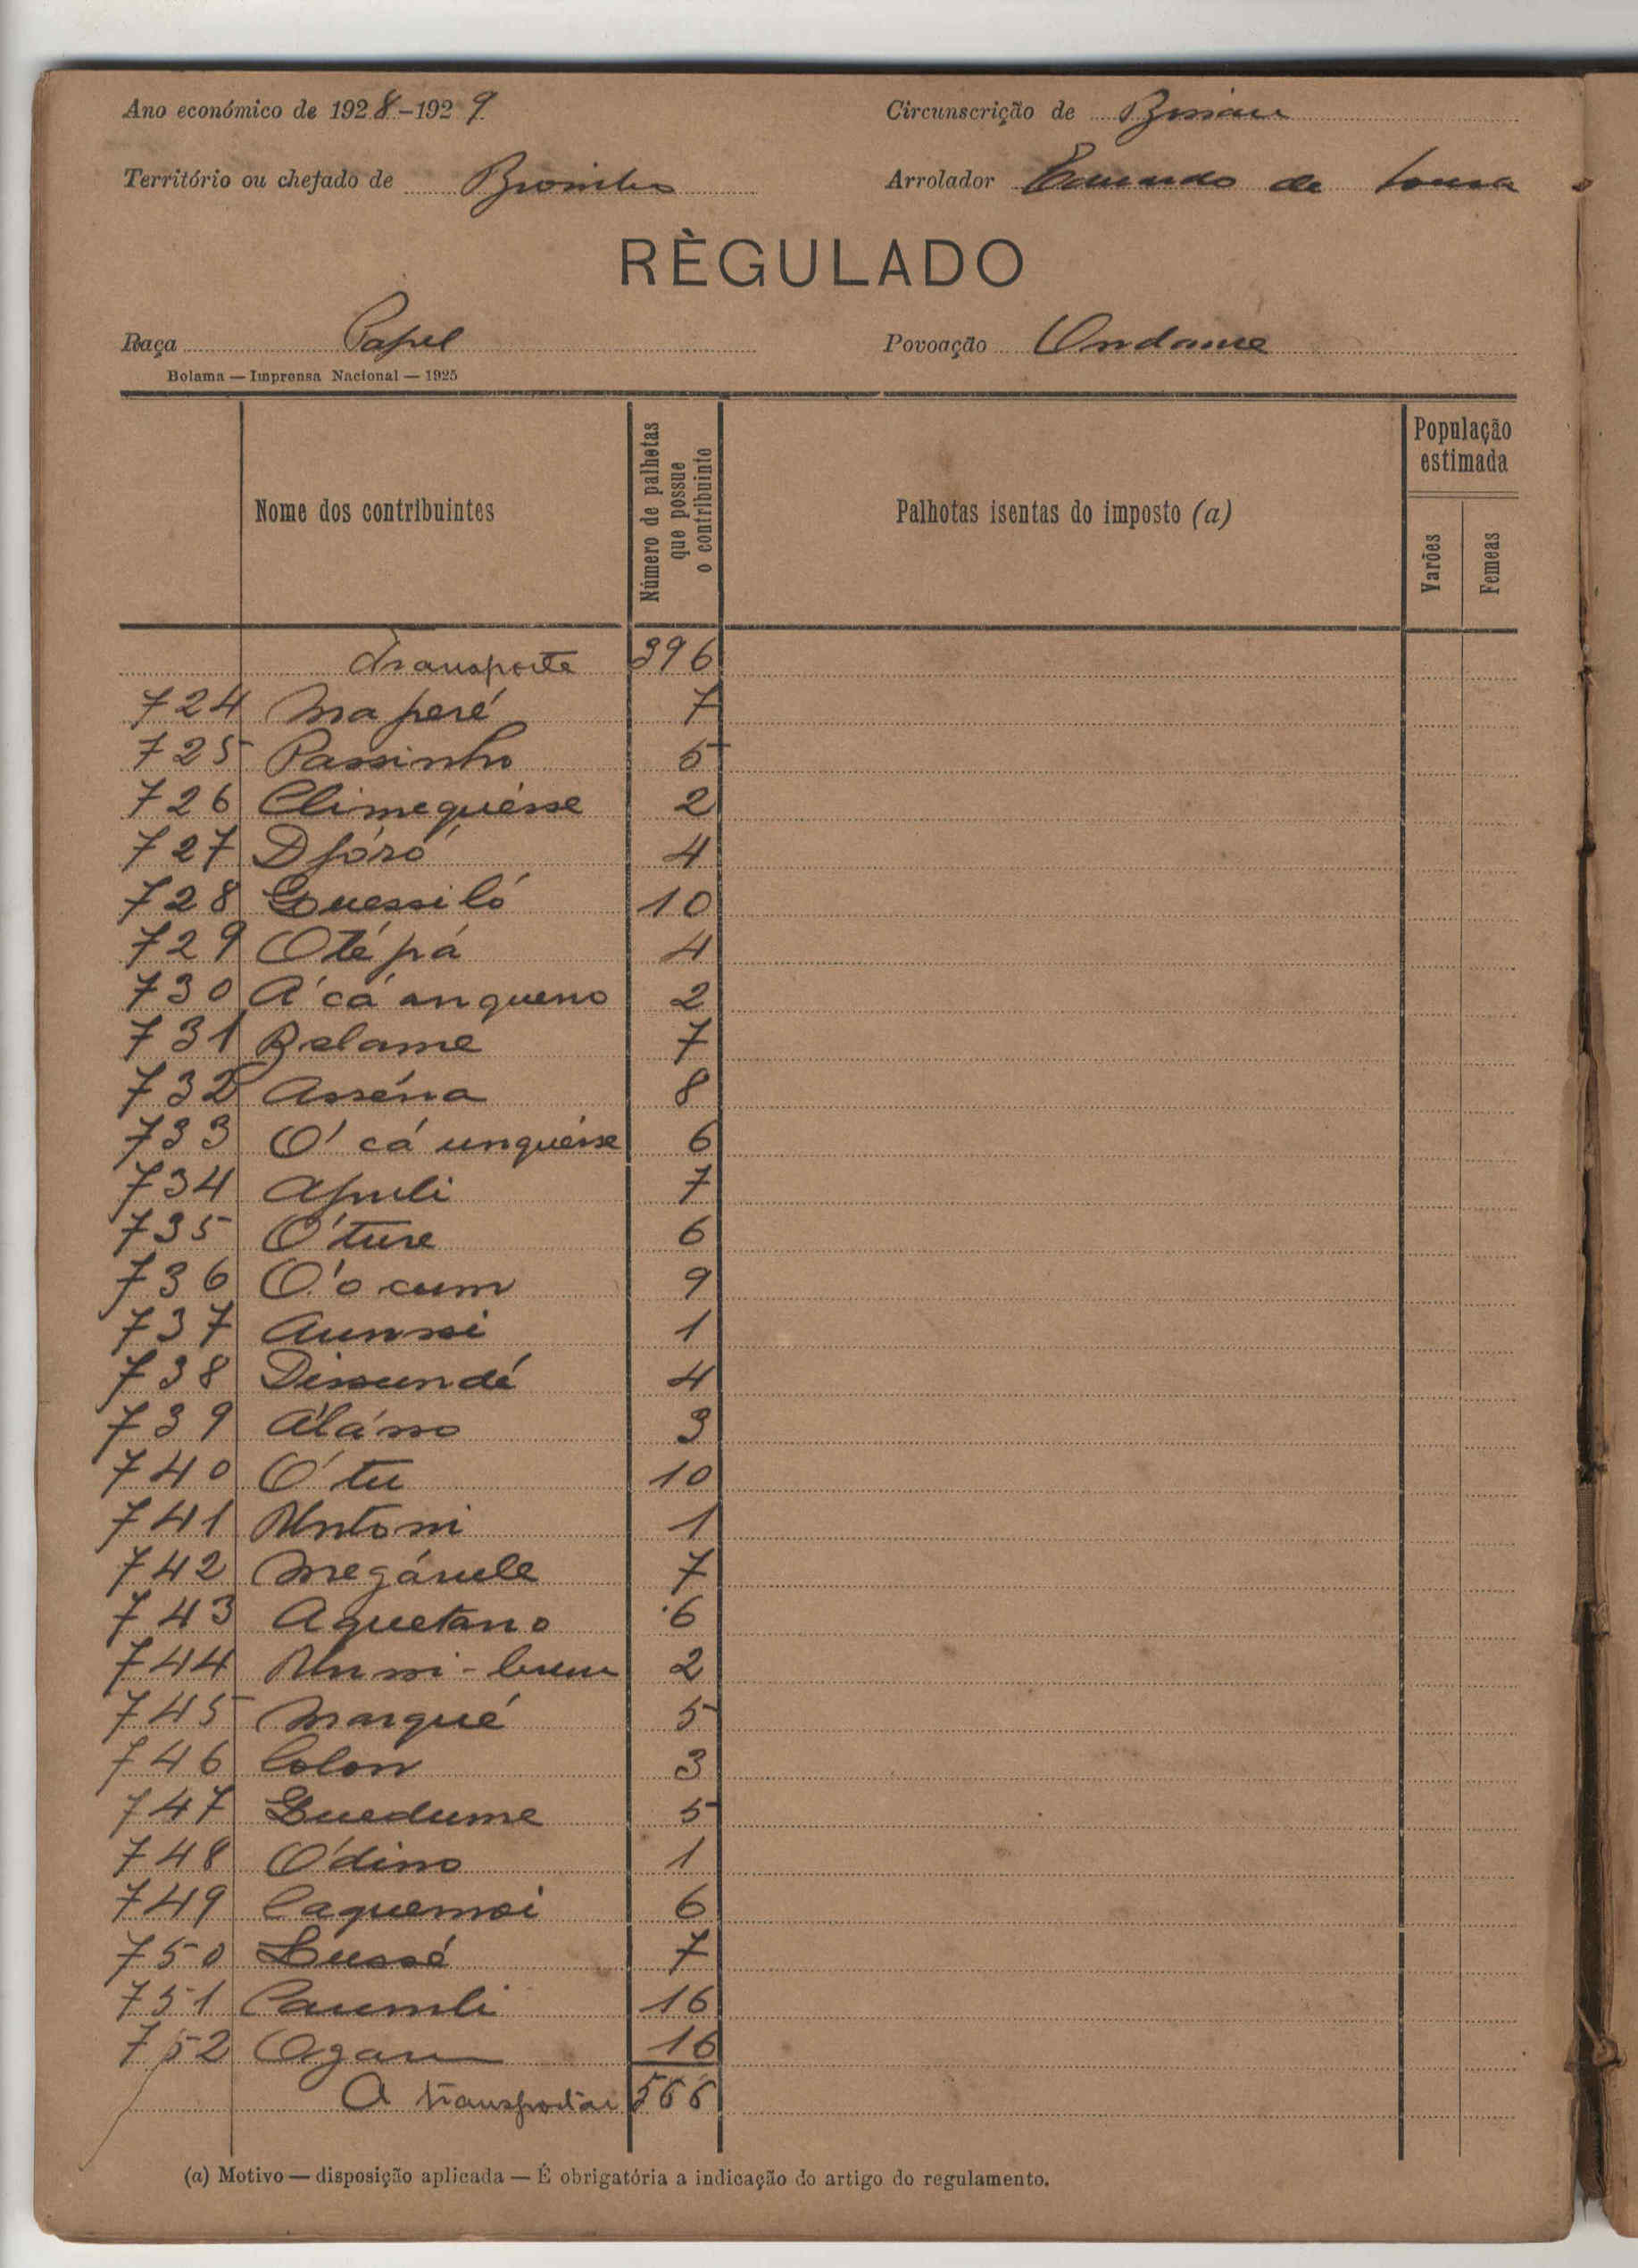 Ano económico de 1928-1929
Circunscrição de Bissau
Território ou chefado de Biombo
Arrolador de Sousa
RÈGULADO
Raça Papel
Povoação Ondame
Bolama — Imprensa Nacional — 1925
Nome dos contribuintes
Número de palhotas que possue o contribuinte
Palhotas isentas do imposto (a)
População estimada
Varões
Femeas
Transporte 396
724 Ma peré 7
725 Passinho 5
726 Climequésse 2
727 Djóró 4
728 Quessiló 10
729 Oté pá 4
730 A' cá anqueno 2
731 Belame 7
732 Asséna 8
733 O' cá unquésse 6
734 Apuli 7
735 O'ture 6
736 O'o cum 9
737 1
738 Dissundé 4
739 Alásso 3
740 O' tu 10
741 Untoni 1
742 Megánele 7
743 Aquetano 6
744 2
745 Marqué 5
746 Colon 3
747 Quedume 5
748 O'dino 1
749 6
750 Lussó 7
751 16
752 16
A transportar 566
(a) Motivo — disposição aplicada — É obrigatória a indicação do artigo do regulamento.